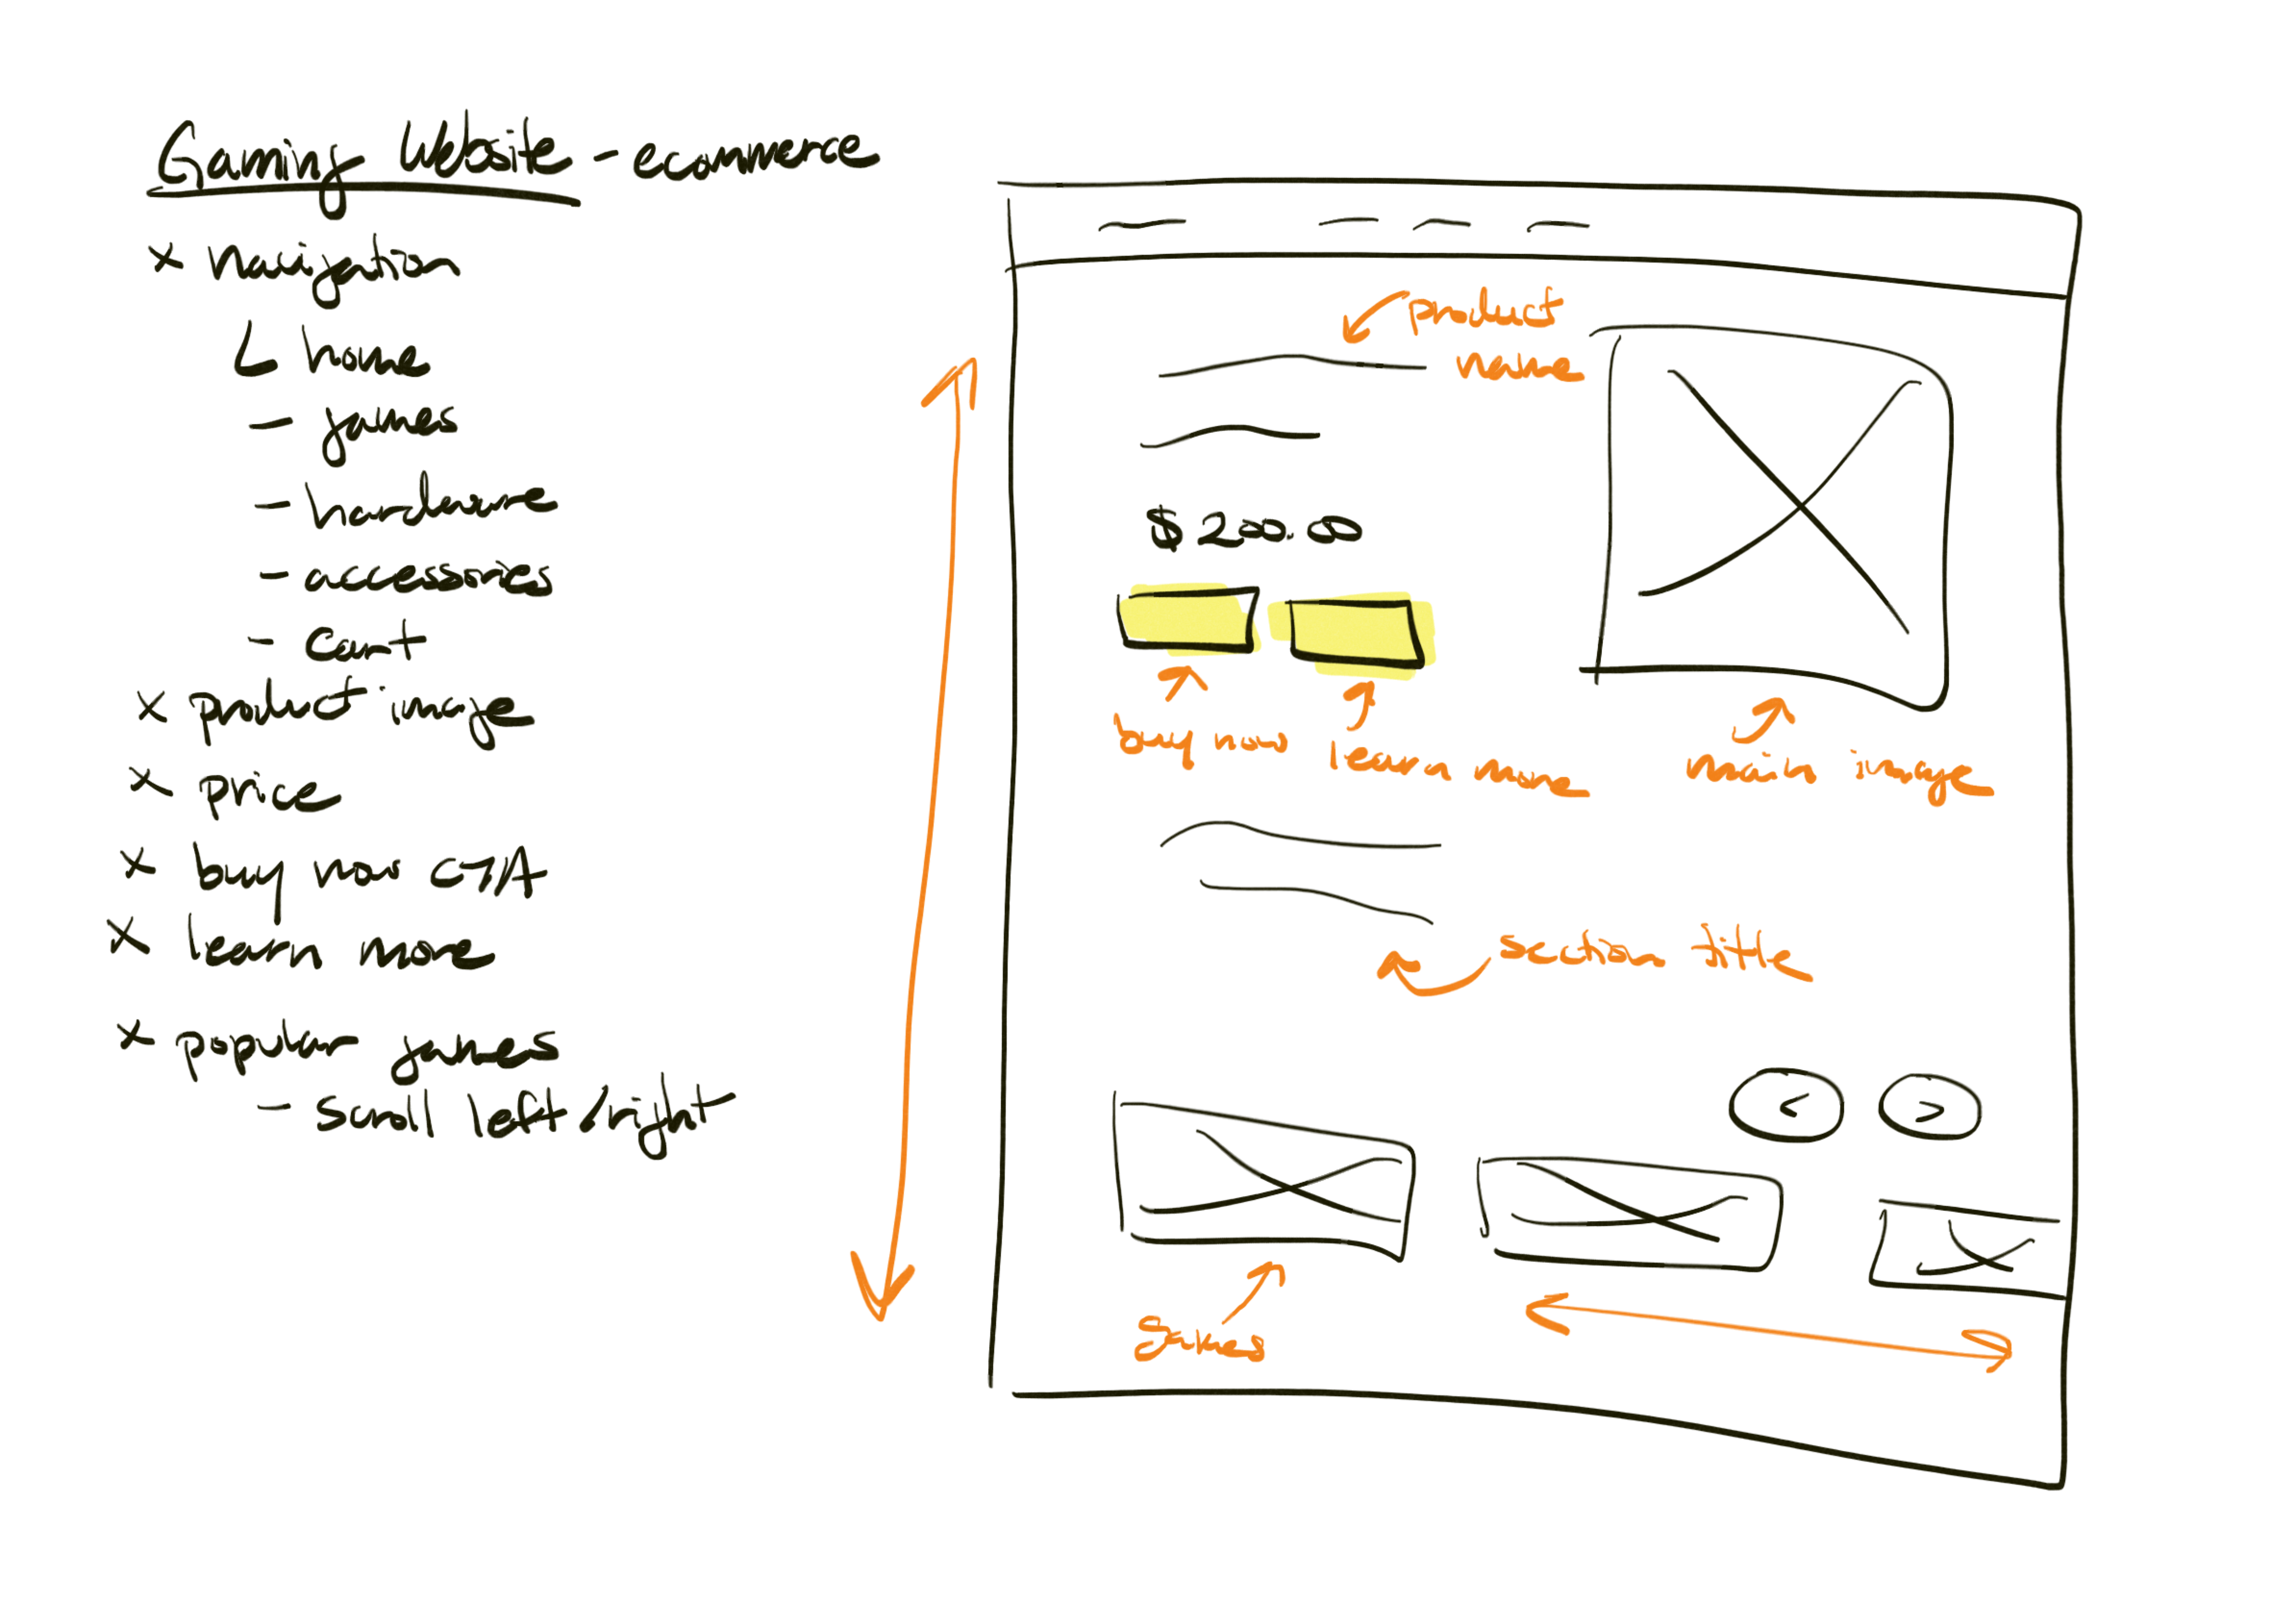 Gaming Website - ecommerce
x navigation
home
- games
- hardware
- accessories
- cart
x product image
x price
x buy now CTA
x learn more
x popular games
- scroll left/right
product
name
$200.00
buy now
learn more
main image
section title
< >
games